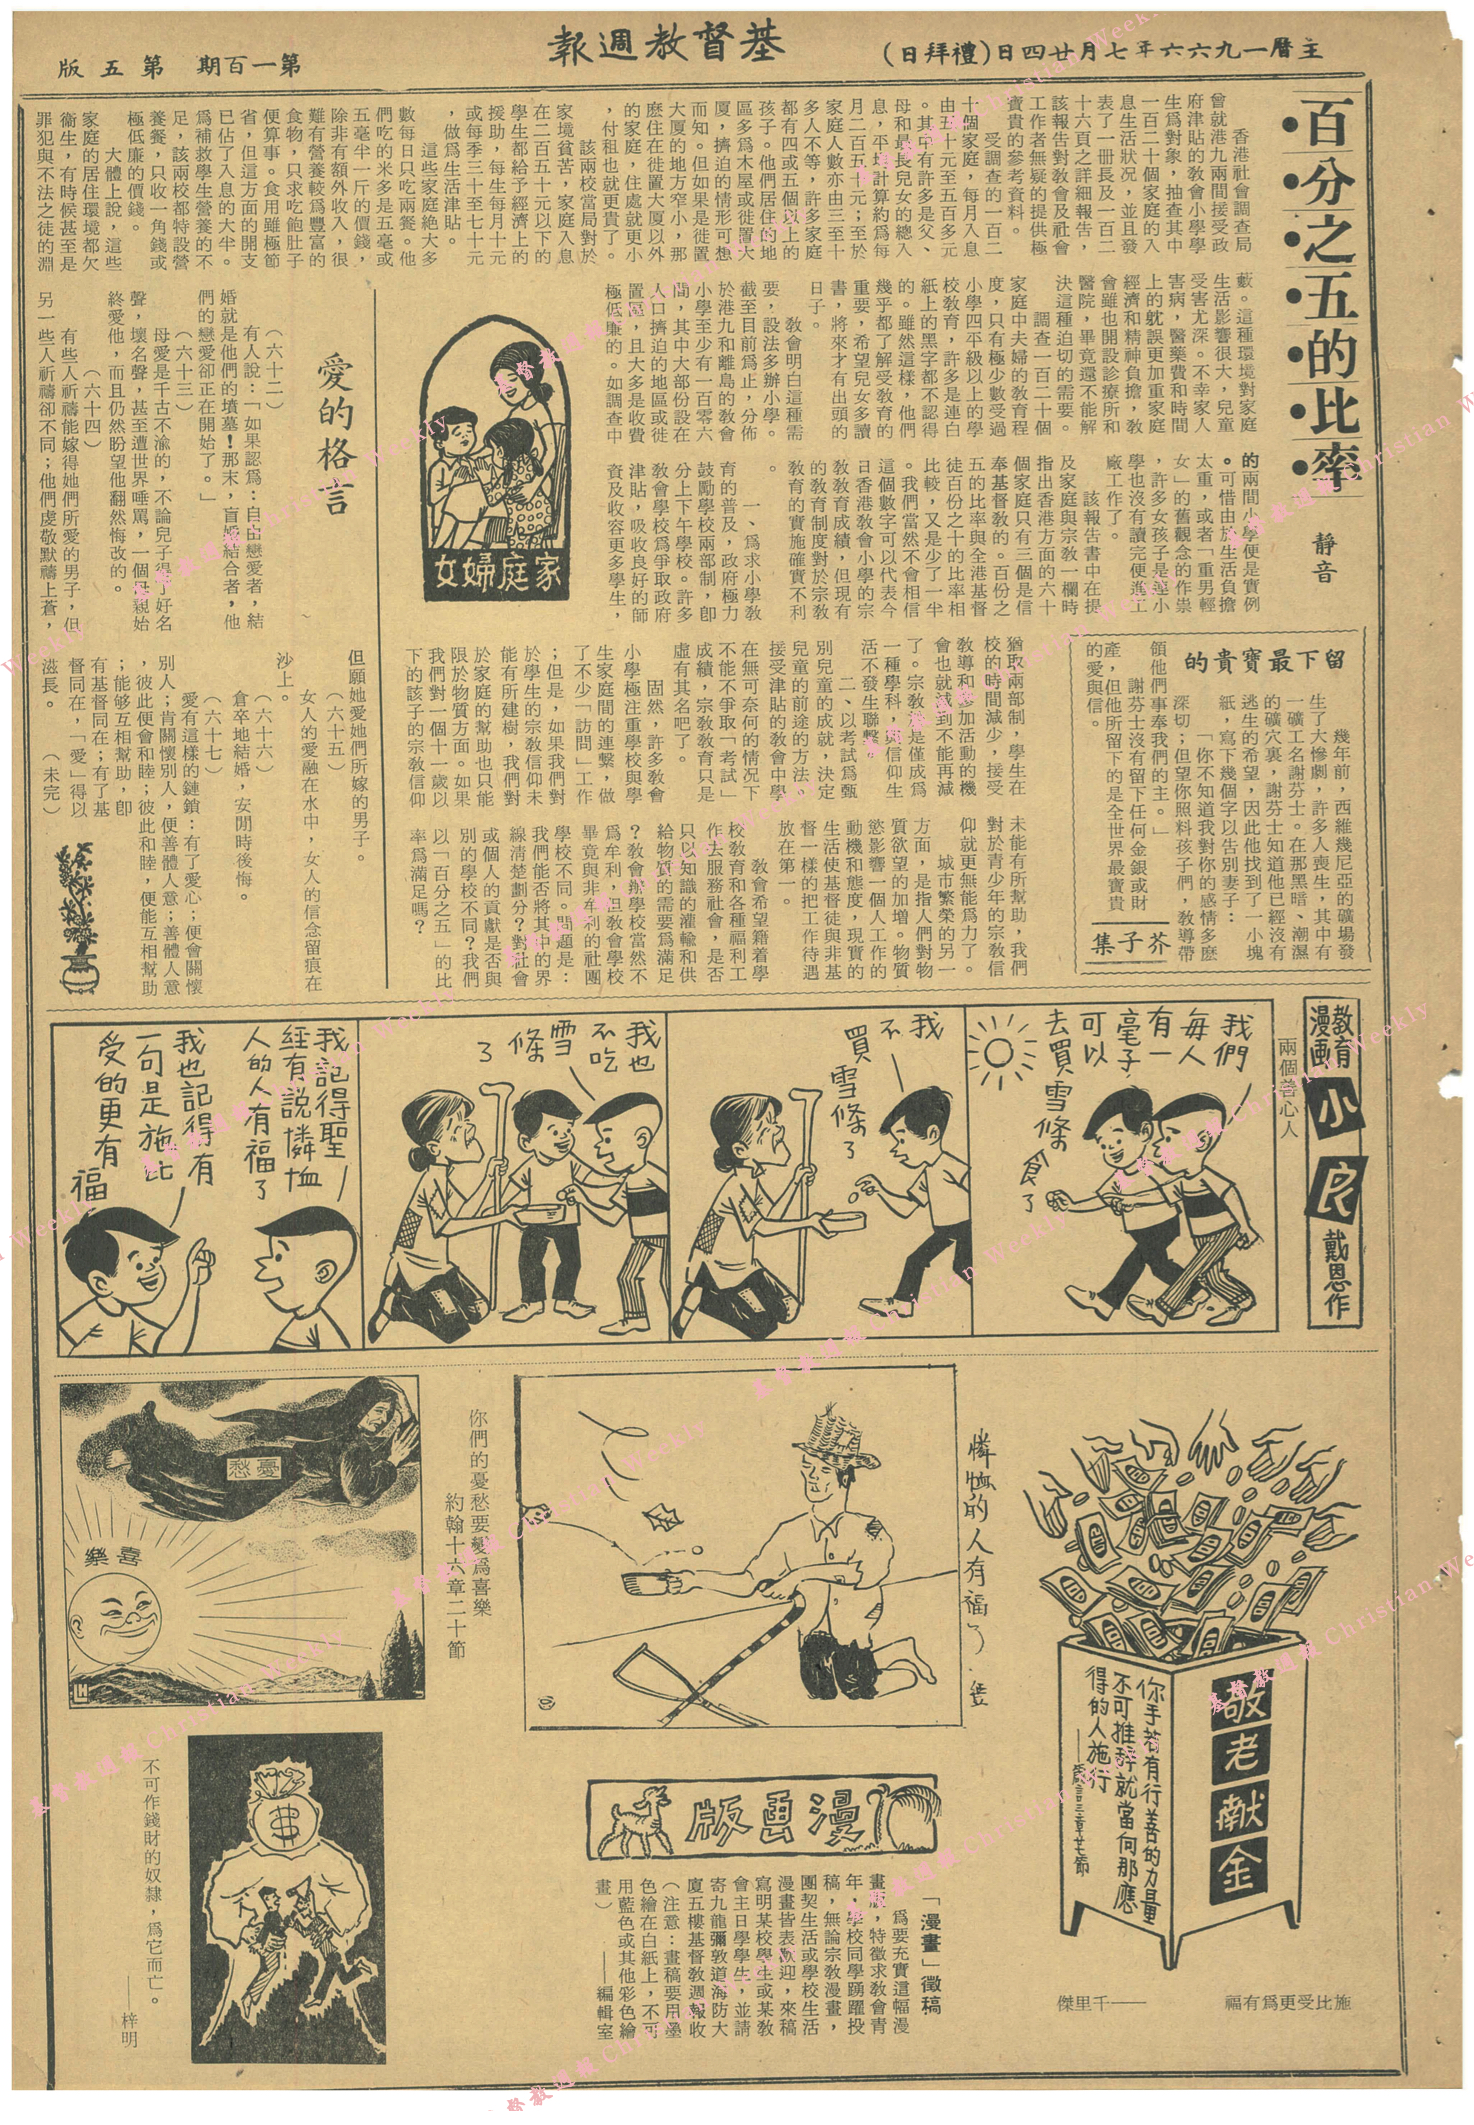 主曆一九六六年七月廿四日(禮拜日)
基督教週報
第一百期 第五版
百分之五的比率
靜音
香港社會調查局
曾就港九兩間接受政
府津貼的教會小學學
生爲對象，抽查其中
一百二十個家庭的入
息生活狀况，並且發
表了一冊長及一百二
十六頁之詳細報告，
該報告對教會及社會
工作者無疑的提供極
寶貴的參考資料。
受調查的一百二
十個家庭，每月入息
由五十元至五百多元
。其中有許多是父、
母和最長兒女的總入
息，平均計算約爲每
月二百五十元；至於
家庭人數亦由三至十
多人不等，許多家庭
都有四或五個以上的
孩子。他們居住的地
區多爲木屋或徙置大
厦，擠迫的情形可想
而知。但如果是徙置
大厦的地方窄小，那
麽住在徙置大厦以外
的家庭，住處就更小
，付租也就更貴了。
該兩校當局對於
家境貧苦，家庭入息
在二百五十元以下的
學生都給予經濟上的
援助，每生每月十元
或每季三十至七十元
，做爲生活津貼。
這些家庭絶大多
數每日只吃兩餐。他
們吃的米多是五毫或
五毫半一斤的價錢，
除非有額外收入，很
難有營養較爲豐富的
食物，只求吃飽肚子
便算事。食用雖極節
省，但這方面的開支
已佔了入息的大半。
爲補救學生營養的不
足，該兩校都特設營
養餐，只收一角錢或
極低廉的價錢。
大體上說，這些
家庭的居住環境都欠
衞生，有時候甚至是
罪犯與不法之徒的淵
藪。這種環境對家庭
生活影響很大，兒童
受害尤深。不幸家人
害病，醫藥費和時間
上的躭誤更加重家庭
經濟和精神負擔，教
會雖也開設診療所和
醫院，畢竟還不能解
決這種迫切的需要。
調查一百二十個
家庭中夫婦的教育程
度，只有極少數受過
小學四平級以上的學
校教育，許多是連白
紙上的黑字都不認得
的。雖然這樣，他們
幾乎都了解受教育的
重要，希望兒女多讀
書，將來才有出頭的
日子。
教會明白這種需
要，設法多辦小學。
截至目前爲止，分佈
於港九和離島的教會
小學至少有一百零六
間，其中大部份設在
人口擠迫的地區或徙
置區，且大多是收費
極低廉的。如調查中
的兩間小學便是實例
。可惜由於生活負擔
太重，或者「重男輕
女」的舊觀念的作祟
，許多女孩子是連小
學也沒有讀完便進工
廠工作了。
該報告書中在提
及家庭與宗教一欄時
指出香港方面的六十
個家庭只有三個是信
奉基督教的。百份之
五的比率與全港基督
徒百份之十的比率相
比較，又是少了一半
。我們當然不會相信
這個數字可以代表今
日香港教會小學的宗
教教育成績，但現有
的教育制度對於宗教
教育的實施確實不利
。
一、爲求小學教
育的普及，政府極力
鼓勵學校兩部制，卽
分上下午學校。許多
教會學校爲爭取政府
津貼，吸收良好的師
資及收容更多學生，
猶取兩部制，學生在
校的時間減少，接受
教導和參加活動的機
會也就減到不能再減
了。宗教於是僅成爲
一種學科，與信仰生
活不發生聯繫。
二、以考試爲甄
別兒童的成就，決定
兒童的前途的方法。
接受津貼的教會中學
在無可奈何的情况下
不能不爭取「考試」
成績，宗教教育只是
虛有其名吧了。
固然，許多教會
小學極注重學校與學
生家庭間的連繫，做
了不少「訪問」工作
；但是，如果我們對
於學生的宗教信仰未
能有所建樹，我們對
於家庭的幫助也只能
限於物質方面。如果
我們對一個十一歲以
下的該子的宗教信仰
未能有所幫助，我們
對於青少年的宗教信
仰就更無能爲力了。
城市繁榮的另一
方面，是指人們對物
質欲望的加增。物質
慾影響一個人工作的
動機和態度，現實的
生活使基督徒與非基
督一樣的把工作待遇
放在第一。
教會希望籍着學
校教育和各種福利工
作去服務社會，是否
只以知識的灌輸和供
給物質的需要爲滿足
？教會辦學校當然不
爲牟利，但教會學校
畢竟與非牟利的社團
學校不同。問題是：
我們能否將其中的界
線清楚劃分？對社會
或個人的貢獻是否與
別的學校不同？我們
以「百分之五」的比
率爲滿足嗎？
家庭婦女
愛的格言
（六十二）
有人說：「如果認爲：自由戀愛者，結
婚就是他們的墳墓！那末，盲婚結合者，他
們的戀愛卻正在開始了。」
（六十三）
母愛是千古不渝的，不論兒子得了好名
聲，壞名聲，甚至遭世界唾罵，一個母親始
終愛他，而且仍然盼望他翻然悔改的。
（六十四）
有些人祈禱能嫁得她們所愛的男子，但
另一些人祈禱卻不同；他們虔敬默禱上蒼，
但願她愛她們所嫁的男子。
（六十五）
女人的愛融在水中，女人的信念留痕在
沙上。
（六十六）
倉卒地結婚，安閒時後悔。
（六十七）
愛有這樣的鏈鎖：有了愛心；便會關懷
別人；肯關懷別人，便善體人意；善體人意
，彼此便會和睦；彼此和睦，便能互相幫助
；能够互相幫助，卽
有基督同在；有了基
督同在，「愛」得以
滋長。　（未完）
留下最寶貴的
幾年前，西維幾尼亞的礦場發
生了大慘劇，許多人喪生，其中有
一礦工名謝芬士。在那黑暗、潮濕
的礦穴裏，謝芬士知道他已經沒有
逃生的希望，因此他找到了一小塊
紙，寫下幾個字以告別妻子：
「你不知道我對你的感情多麽
深切；但望你照料孩子們，教導帶
領他們事奉我們的主。」
謝芬士沒有留下任何金銀或財
產，但他所留下的是全世界最寶貴
的愛與信。
芥子集
教育漫画
小良
戴恩作
兩個善心人
我們
每人
有一
毫子
可以
去買雪條
食了
我
不
買雪條了
我也
不吃
雪
條
了
我記得聖
經有說憐恤
人的人有福了
我也記得有
一句是施比
受的更有
福
憂愁
喜樂
你們的憂愁要變爲喜樂
約翰十六章二十節
憐恤的人有福了
敬老献金
你手若有行善的力量
不可推辭就當向那應
得的人施行
——箴言三章廿七節
施比受更爲有福
——千里傑
漫画版
「漫畫」徵稿
爲要充實這幅漫
畫版，特徵求教會青
年，學校同學踴躍投
稿，無論宗教漫畫，
團契生活或學校生活
漫畫皆表歡迎，來稿
寫明某校學生或某教
會主日學學生，並請
寄九龍彌敦道海防大
廈五樓基督教週報收
（注意：畫稿要用墨
色繪在白紙上，不可
用藍色或其他彩色繪
畫）　——編輯室
不可作錢財的奴隸，爲它而亡。
——梓明
基督教週報 Christian Weekly